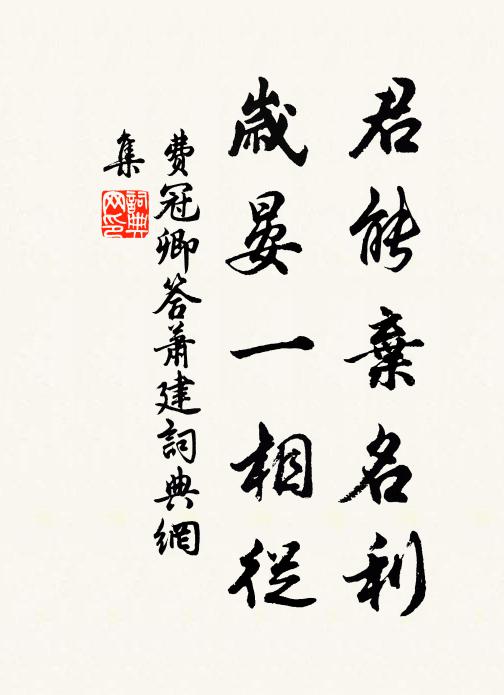 君能棄名利
歲晏一相從
費冠卿答蕭建詞典網
集
詞典
网印